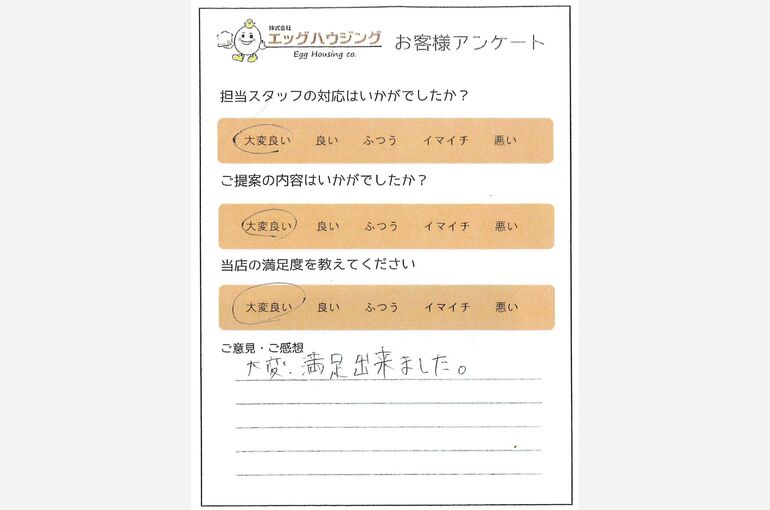 株式会社
エッグハウジング
Egg Housing co.
お客様アンケート
担当スタッフの対応はいかがでしたか？
大変良い 良い ふつう イマイチ 悪い
ご提案の内容はいかがでしたか？
大変良い 良い ふつう イマイチ 悪い
当店の満足度を教えてください
大変良い 良い ふつう イマイチ 悪い
ご意見・ご感想
大変、満足出来ました。